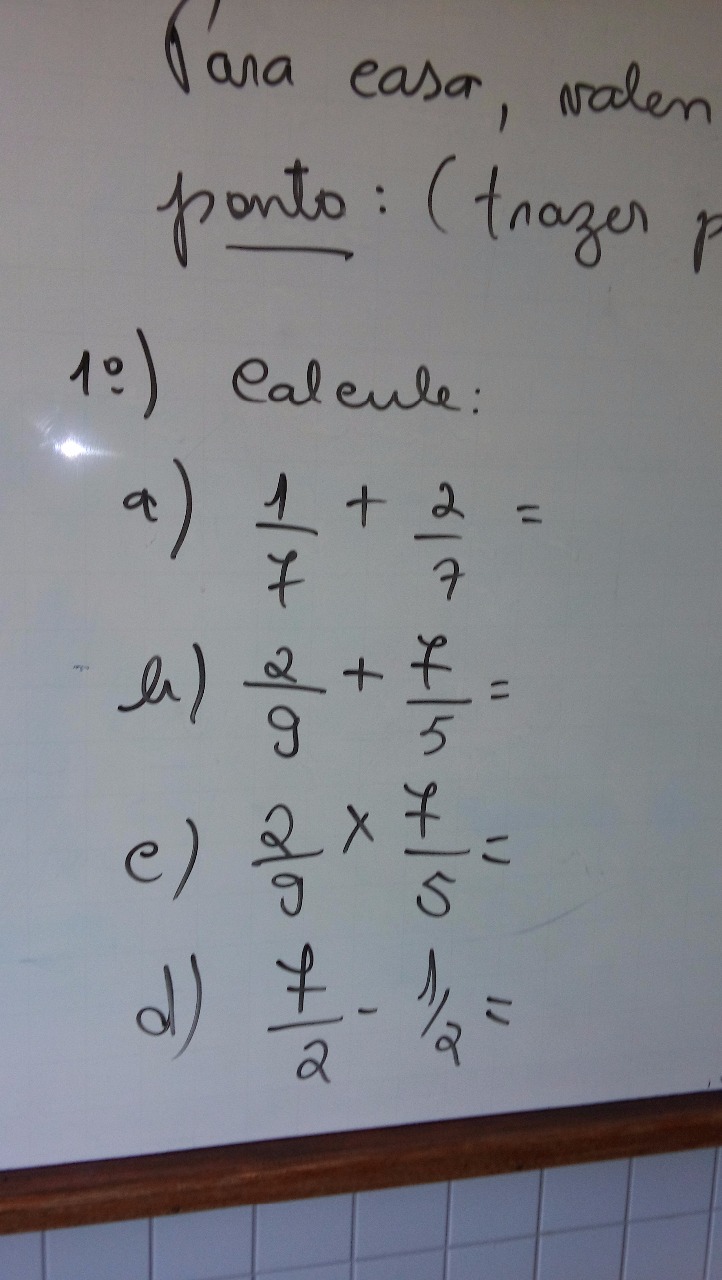 Para casa, valen
ponto: (trazer p
1º) Calcule:
a) 1/7 + 2/7 =
b) 2/9 + 7/5 =
c) 2/9 x 7/5 =
d) 7/2 - 1/2 =